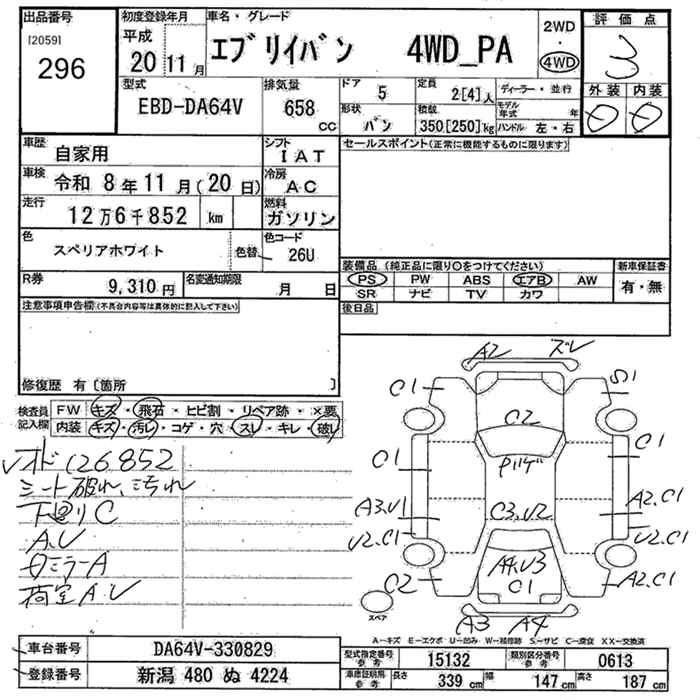 出品番号
[2059]
296
初度登録年月
平成
20 11 月
車名・グレード
エブリイバン 4WD_PA
2WD
4WD
評価点
3
外装 内装
型式
EBD-DA64V
排気量
658 cc
ドア
5
形状
バン
定員
2[4]人
積載
350[250]kg
ディーラー・並行
モデル年式 年
ハンドル 左・右
車歴
自家用
シフト
IAT
車検
令和 8年11月(20日)
冷房
AC
走行
12万6千852 km
燃料
ガソリン
色
スペリアホワイト
色替
色コード
26U
R券
9,310円
名変通知期限
月 日
セールスポイント(正常に機能するものに限ります)
装備品(純正品に限り○をつけてください)
PS PW ABS エアB AW
SR ナビ TV カワ
新車保証書
有・無
後日品
注意事項申告欄(不具合内容等は具体的に記入して下さい)
修復歴 有〔箇所 〕
検査員記入欄
FW キズ・飛石・ヒビ割・リペア跡・×要
内装 キズ・汚レ・コゲ・穴・スレ・キレ・破レ
オド126852
シート破れ、汚れ
下廻りC
A.U
ミラーA
荷室A.U
A2 ズレ
C1 S1
C2
C1 C1
C3.U2
A3.U1 A2.C1
U2.C1 U2.C1
A4.U3
C1
C2 A2.C1
A3 A4
スペア
A-キズ E-エクボ U-凹み W-補修跡 S-サビ C-腐食 XX-交換済
車台番号
DA64V-330829
登録番号
新潟 480 ぬ 4224
型式指定番号
参考
15132
類別区分番号
参考
0613
車庫証明用
参考
長さ 339 cm 幅 147 cm 高さ 187 cm